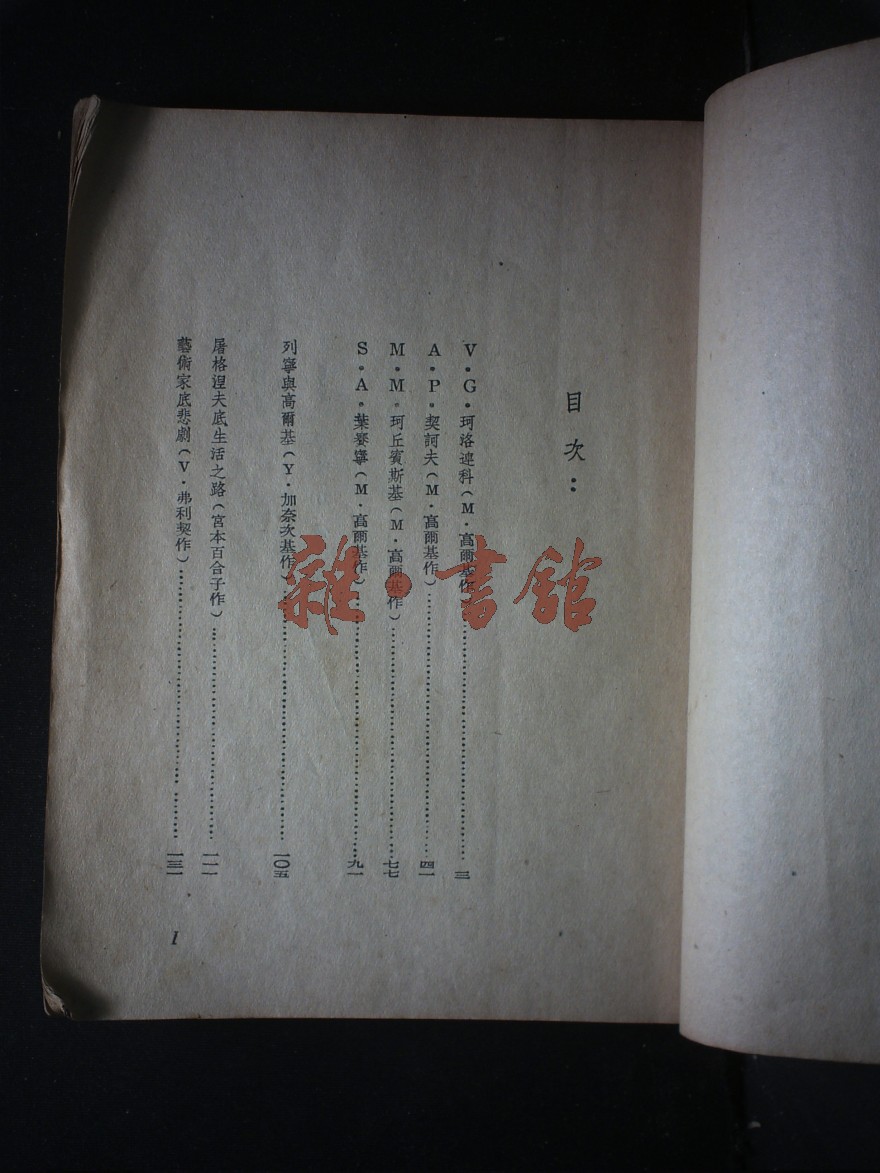 目次：
V·G·珂洛連科（M·高爾基作）……三
A·P·契訶夫（M·高爾基作）……四一
M·M·珂丘賓斯基（M·高爾基作）……七七
S·A·葉賽寧（M·高爾基作）……九一
列寧與高爾基（Y·加奈次基作）……一〇五
屠格涅夫底生活之路（宮本百合子作）……一一一
藝術家底悲劇（V·弗利契作）……一三一
I
雜·書館